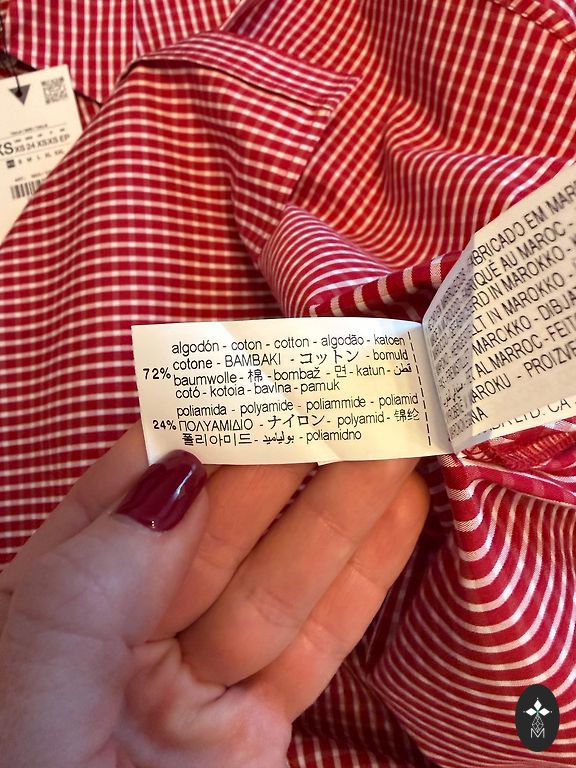 XS XS 24 XS XS EP
XS S M L XL XXL
algodón - coton - cotton - algodão - katoen
cotone - BAMBAKI - コットン - bomuld
72% baumwolle - 棉 - bombaž - 면 - katun - قطن
cotó - kotoia - bavlna - pamuk
poliamida - polyamide - poliammide - poliamid
24% ΠΟΛΥΑΜΙΔΙΟ - ナイロン - polyamid - 锦纶
폴리아미드 - بولياميد - poliamidno
BRICADO EM MAR
IQUÉ AU MAROC -
RD IN MAROKKO -
LT IN MAROKKO -
MARCKKO - DIBJA
AL MARROC - FEIT
MAROKU - PROIZVE
ANA